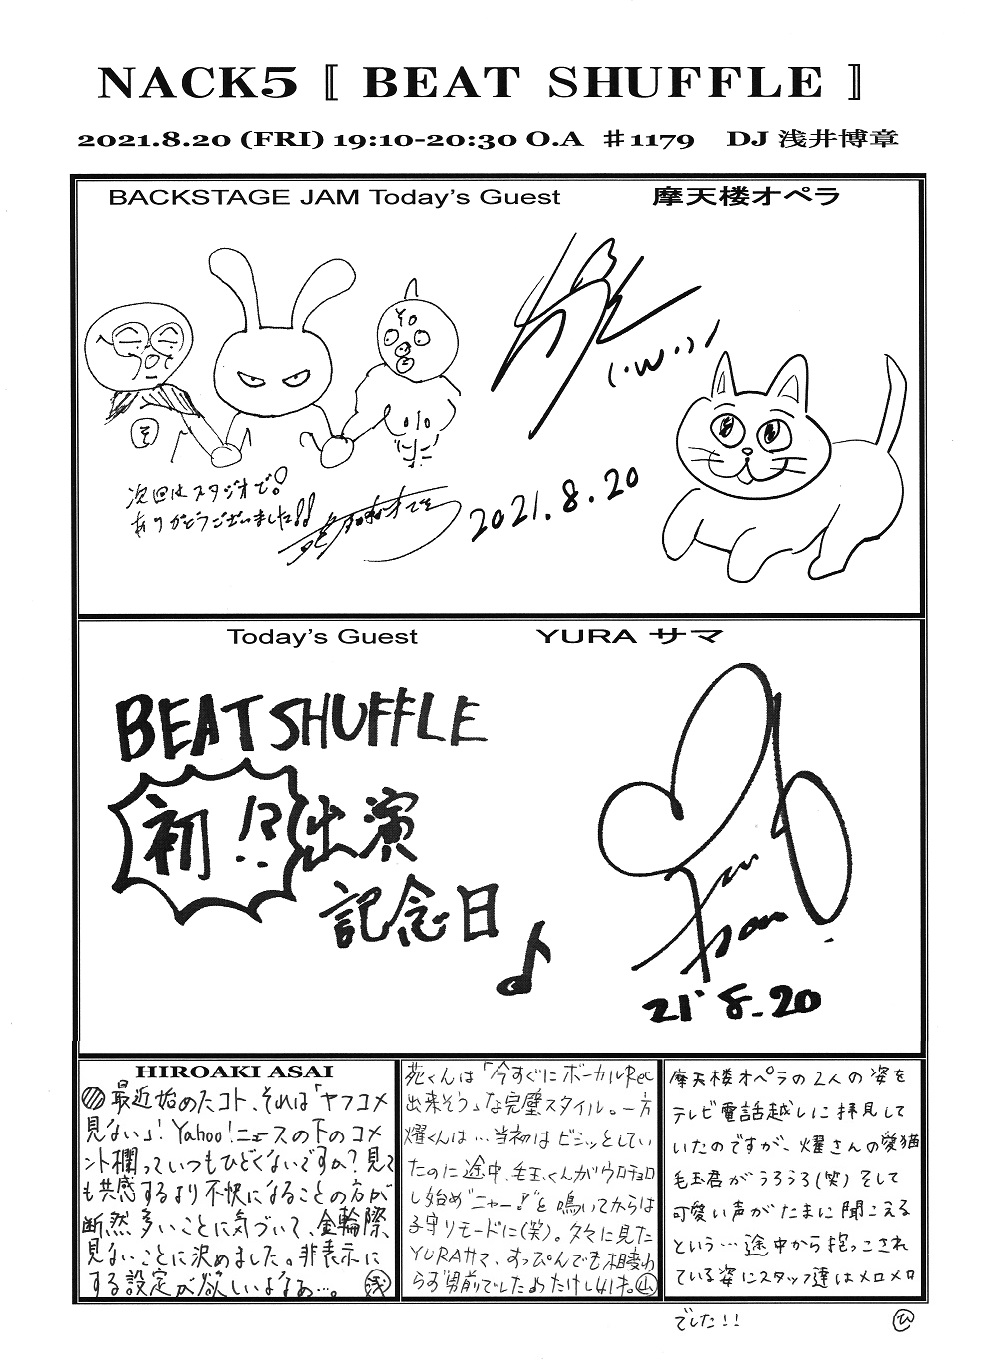 NACK5 〚 BEAT SHUFFLE 〛
2021.8.20 (FRI) 19:10-20:30 O.A ♯1179 DJ 浅井博章
BACKSTAGE JAM Today's Guest 摩天楼オペラ
そ
次回はスタジオで!
ありがとうございました!!
2021.8.20
Today's Guest YURA サマ
BEAT SHUFFLE
初!? 出演
記念日♪
21' 8.20
HIROAKI ASAI
最近始めたコト、それは「ヤフコメ
見ない」! Yahoo!ニュースの下のコメ
ント欄っていつもひどくないですか?見て
も共感するより不快になることの方が
断然多いことに気づいて、金輪際、
見ないことに決めました。非表示に
する設定が欲しいなぁ…。浅
苑くんは「今すぐにボーカルRec
出来そう」な完璧スタイル。一方
燿くんは…当初はビシッとしてい
たのに途中、毛玉くんがウロチョロ
し始め"ニャー!"と鳴いてからは
子守りモードに(笑)。久々に見た
YURAサマ、すっぴんでも相変わ
らず男前でした
摩天楼オペラの2人の姿を
テレビ電話越しに拝見して
いたのですが、燿さんの愛猫
毛玉君がうろうろ(笑)そして
可愛い声がたまに聞こえる
という…途中から抱っこされ
ている姿にスタッフ達はメロメロ
でした!! ひ